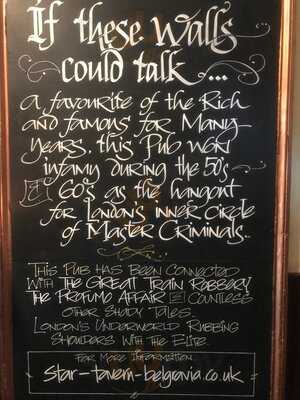 If these walls
could talk...
a favourite of the Rich
and famous for Many
years, this Pub won
infamy during the 50's
& 60's as the hangout
for London's inner circle
of Master Criminals..
This Pub has been connected
with The Great Train Robbery
The Profumo Affair & countless
other shady tales.
London's Underworld Rubbing
Shoulders with the Elite.
For More Information
star-tavern-belgravia.co.uk